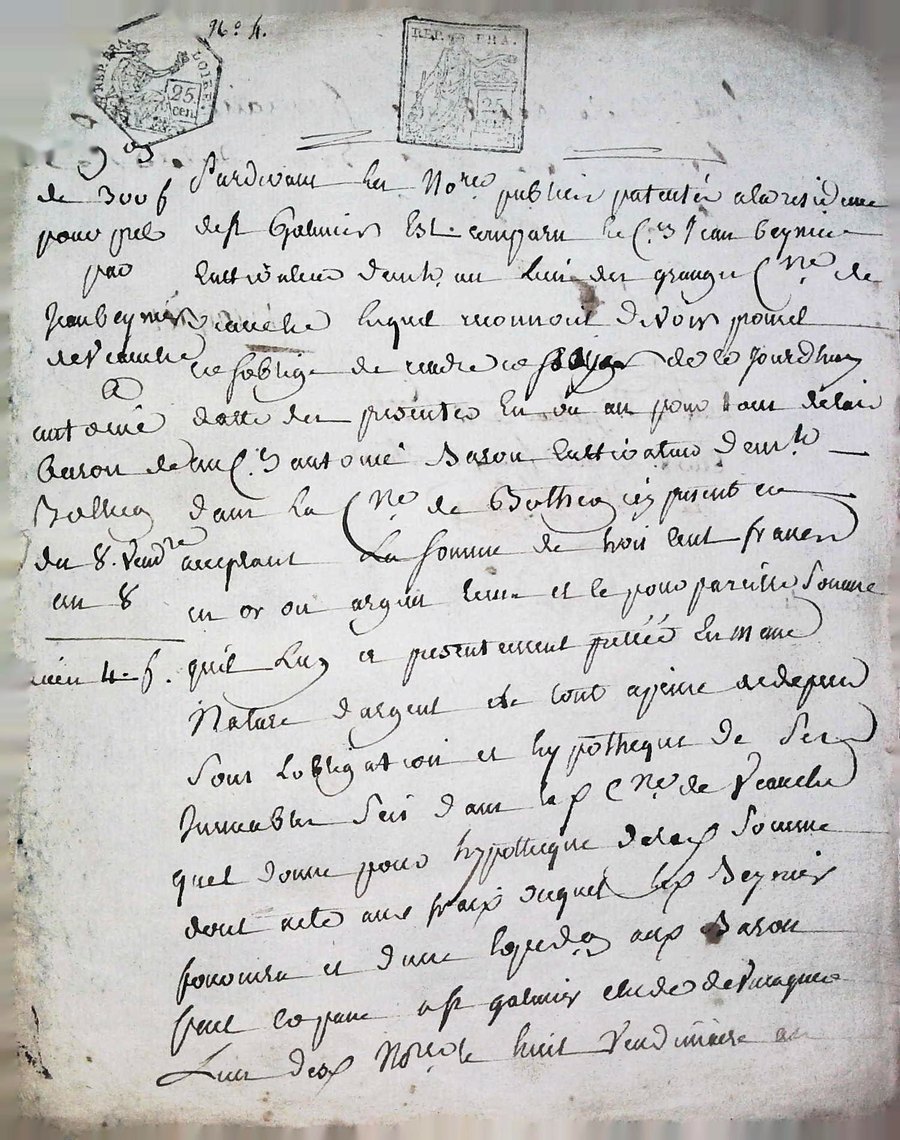 N.º 4.
REP. FRA. LOIRE
25. cen
REP. FRA.
25
de 300 f
pour prêt
par
Jean beynier
de Veauche
a
antoine
Baron de
Botheon
du 8. Vend.re
an 8
Pardevant les No.res publics patentés a la residence
de st Galmier Est comparu le C.en Jean beynier
Cultivateur demt. au Lieu des granges C.ne de
Veauche lequel reconnoit devoir promet
et s'oblige de rendre de ce jourdhuy
datte des presentes En un an pour tout delai
au C.en antoine Baron Cultivateur demt.
dans La C.ne de Botheon icy present et
acceptant La somme de trois cent francs
en or ou argent et ce pour pareille Somme
quil Luy a presentement prettée En meme
Nature d'argent a peine de depens
Sous Lobligation et hypotheque de Ses
Immeubles Scis dans la C.ne de Veauche
quel donne pour hypotheque de la Somme
dont acte aux fraix duquel Beynier
fournira et dune aux Baron
fait et passé a st galmier etude de
Lun des No.res le huit Vendimiaire an